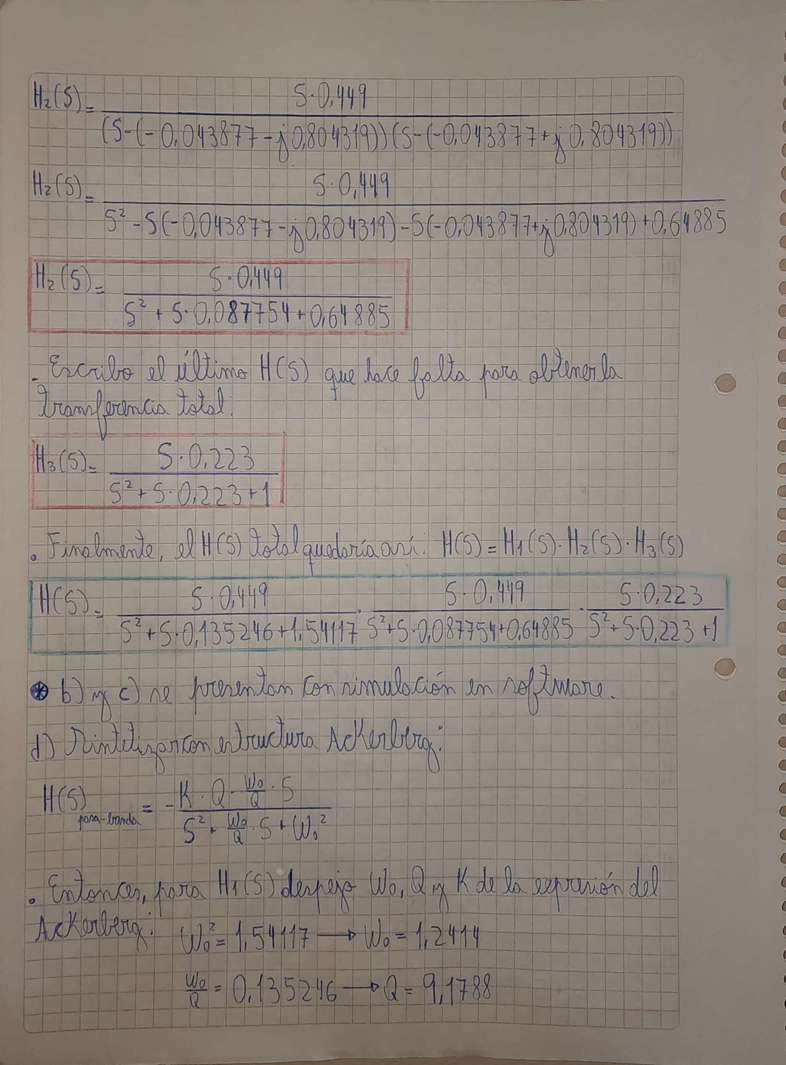 H₂(S)= S·0,449 / (S-(-0,043877-j0,804319))(S-(-0,043877+j0,804319))
H₂(S)= S·0,449 / S²-S(-0,043877-j0,804319)-S(-0,043877+j0,804319)+0,64885
H₂(S)= S·0,449 / S²+S·0,087754+0,64885
- Escribo el último H(S) que hace falta para obtener la
transferencia total.
H₃(S)= S·0,223 / S²+S·0,223+1
. Finalmente, el H(S) total quedaría así: H(S)=H₁(S)·H₂(S)·H₃(S)
H(S)= S·0,449 / S²+S·0,135246+1,54117 · S·0,449 / S²+S·0,087754+0,64885 · S·0,223 / S²+S·0,223+1
* b) y c) se presentan con simulación en software.
d) Sintetizar con estructura Ackerberg:
H(S) pasa-banda = -K·Q·W₀/Q·S / S²+W₀/Q·S+W₀²
. Entonces, para H₁(S) despejo W₀, Q y K de la expresión del
Ackerberg: W₀²=1,54117 → W₀=1,2414
W₀/Q=0,135246 → Q=9,1788